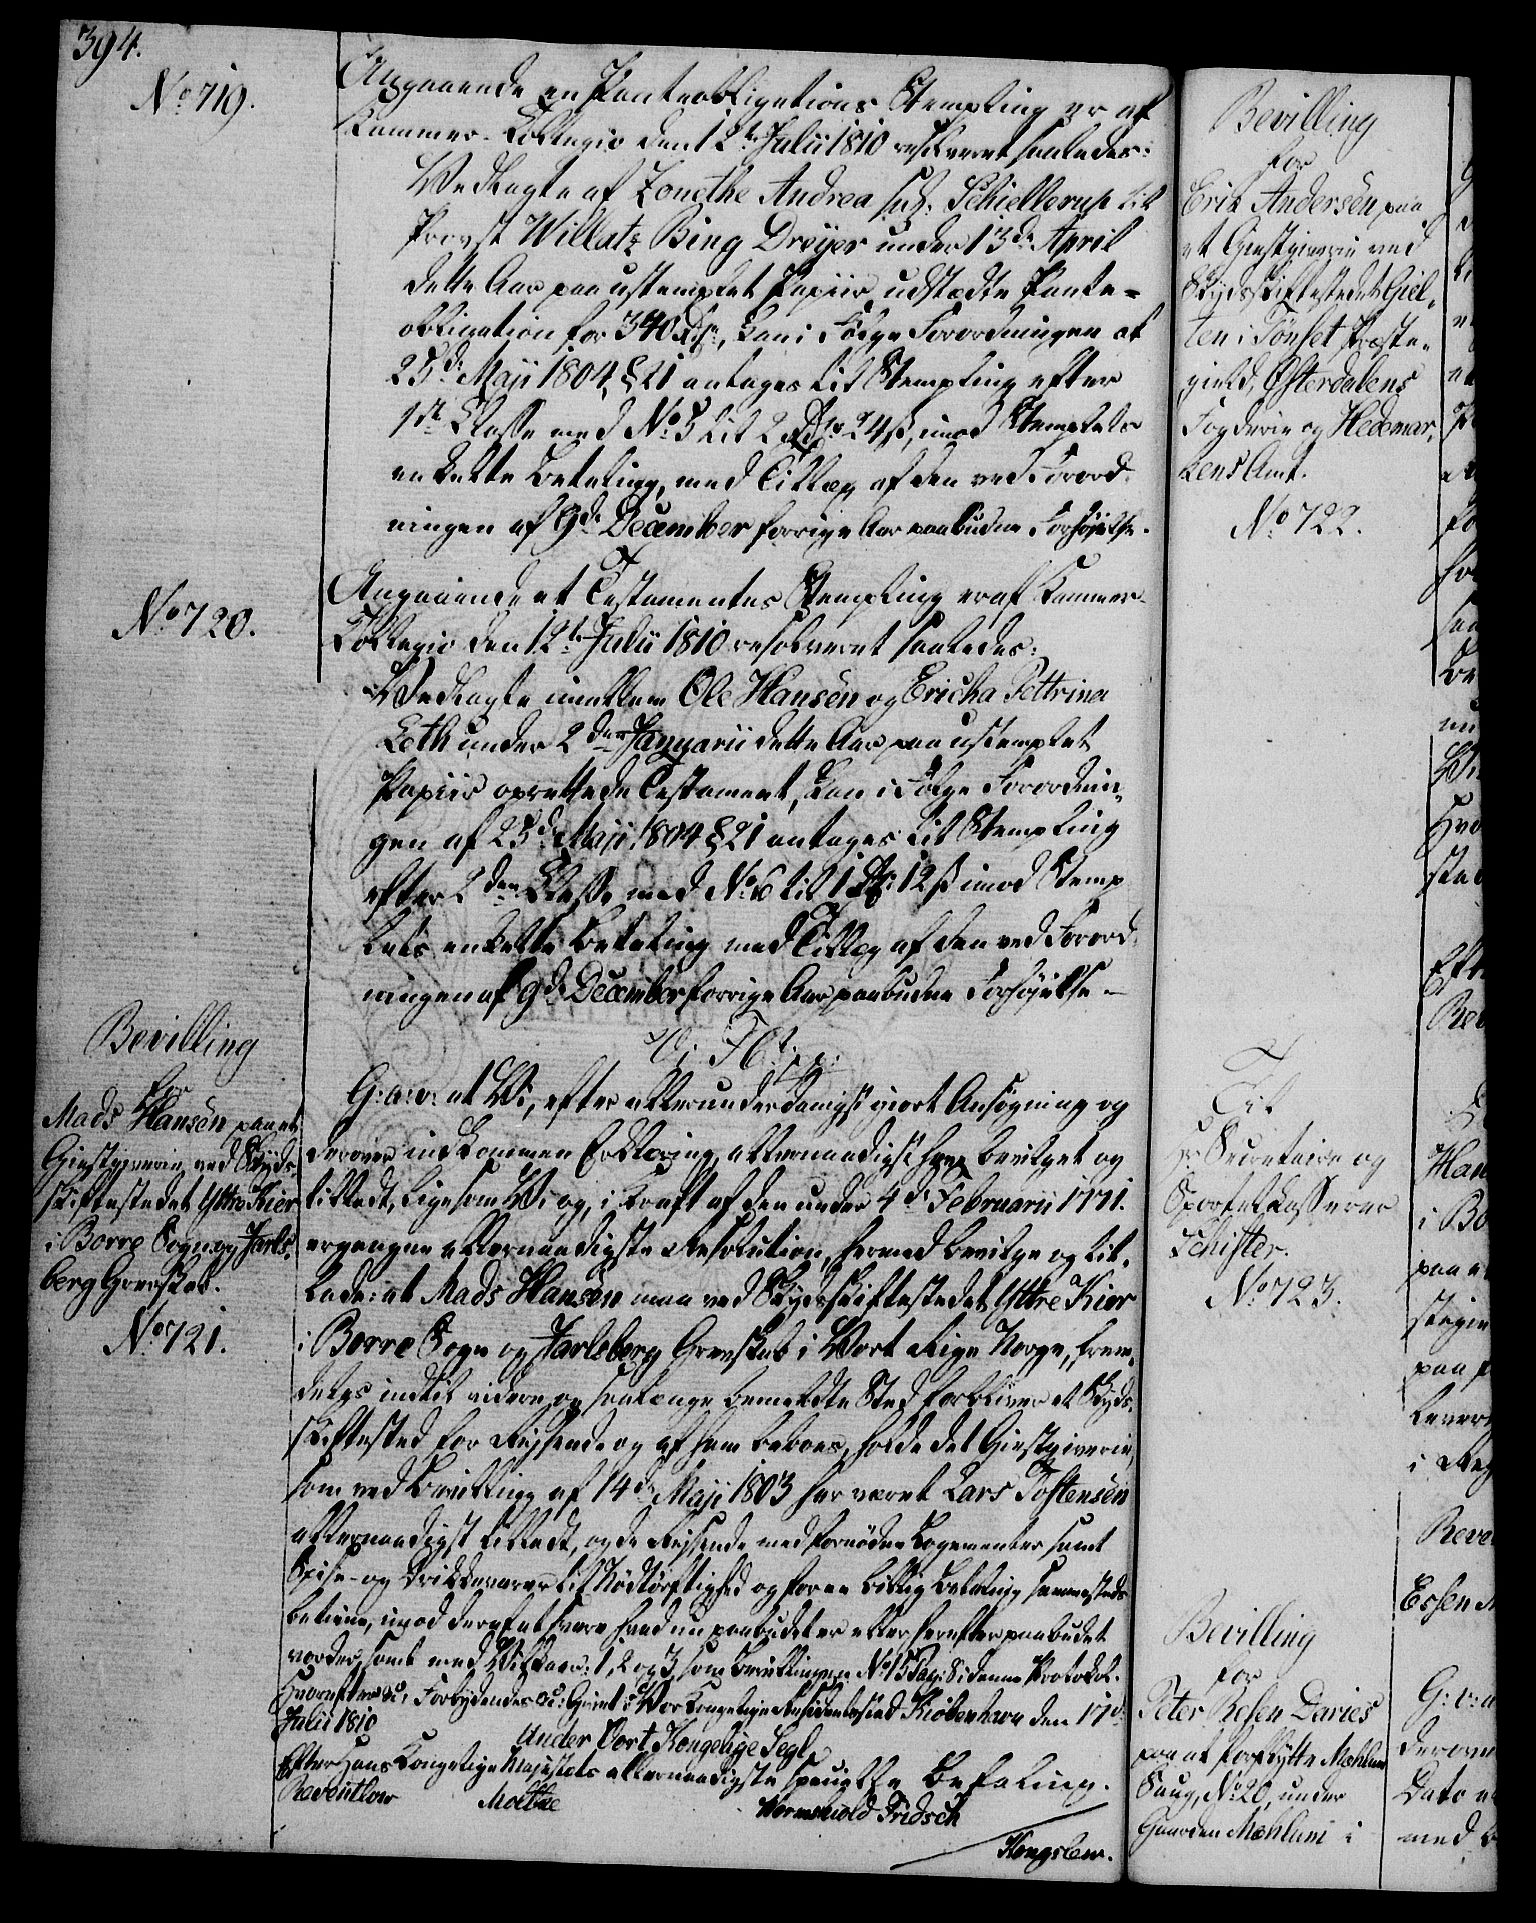 394.
No 719.
Angaaende en Panteobligations Stempling er af
Kammer-Collegio den 12te Julii 1810 resolveret saaledes:
Vedlagte af Zenethe Andrea sal: Schiellerup til
Provst Willatz Bing Dreyer under 13de April
dette Aar paa ustemplet Papiir udstædte Pante-
obligation for 340 Rdr, kan i Følge Forordningen af
25de Maji 1804 § 21 antages til Stempling efter
1ste Classe med No 5 til 2 Rdr 24 ß, imod Stemplets
enkelte Betaling, med Tillæg af den ved Forord-
ningen af 9de December forrige Aar paabudne Forhøjelse.
No 720.
Angaaende et Testamentes Stempling er af Kammer-
Collegio den 12te Julii 1810 resolveret saaledes:
Vedlagte imellem Ole Hansen og Ericha Pettrina
Leth under 2den Januarii dette Aar paa ustemplet
Papiir oprettede Testament, kan i Følge Forordnin-
gen af 25de Maji 1804 § 21 antages til Stempling
efter 2den Classe med No 6 til 1 Rdr 12 ß imod Stemp
lets enkelte Betaling med Tillæg af den ved Forord-
ningen af 9de December forrige Aar paabudne Forhøjelse -
Bevilling
for
Mads Hansen paa et
Giestgiverie ved Skyds-
skiftestedet Yttre Kier
i Borre Sogn og Jarls-
berg Grevskab.
No 721.
Vi Fr. p. p.
G: a: v: at Vi, efter allerunderdanigst giort Ansøgning og
derover indkommen Erklæring, allernaadigst have bevilget og
tilladt, ligesom Vi og, i Kraft af den under 4de Februarii 1771.
ergangne allernaadigste Resolution, hermed bevilge og til-
lade: at Mads Hansen maa ved Skydsskiftestedet Yttre Kier
i Borre Sogn og Jarlsberg Grevskab i Vort Rige Norge, frem-
deles indtil videre og saalænge bemeldte Sted forbliver et Skyds-
skiftested for Rejsende og af ham beboes, holde det Giestgiverie,
som ved Bevilling af 14de Maji 1803 har været Lars Tostensen
allernaadigst tilladt, og de Rejsende med fornødne Logementer samt
Spise- og Drikkevarer til Nødtørftighed og for en billig Betaling sammesteds
betiene, imod deraf at svare hvad nu paabudet er eller herefter paabudet
vorder, samt med Vilkaar: 1, 2 og 3 som Bevillingen No 15 Pag: 8 i denne Protokol.
Hvorefter &c: Forbydendes &c: Givet i Vor Kongelige Residentsstad Kiøbenhavn den 17de
Julii 1810
Under Vort Kongelige Segl.
Efter Hans Kongelige Majestæts allernaadigste specielle Befaling.
Reventlow Moltke Wormskiold Fridsch
Kongslew.
Bevilling
for
Erik Andersen paa
et Giestgiverie ved
Skydsskiftestedet Giel-
ten i Tønset Præste-
gield, Østerdalens
Fogderie og Hedemar-
kens Amt.
No 722.
Til
Hr Secretaire og
Sportelkasserer
Schifter.
No 723.
Bevilling
for
Peter Resen Daries
paa at forflytte Mæhlum
Saug, No 20, under
Gaarden Mæhlum i